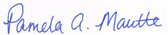 Pamela A. Mautte